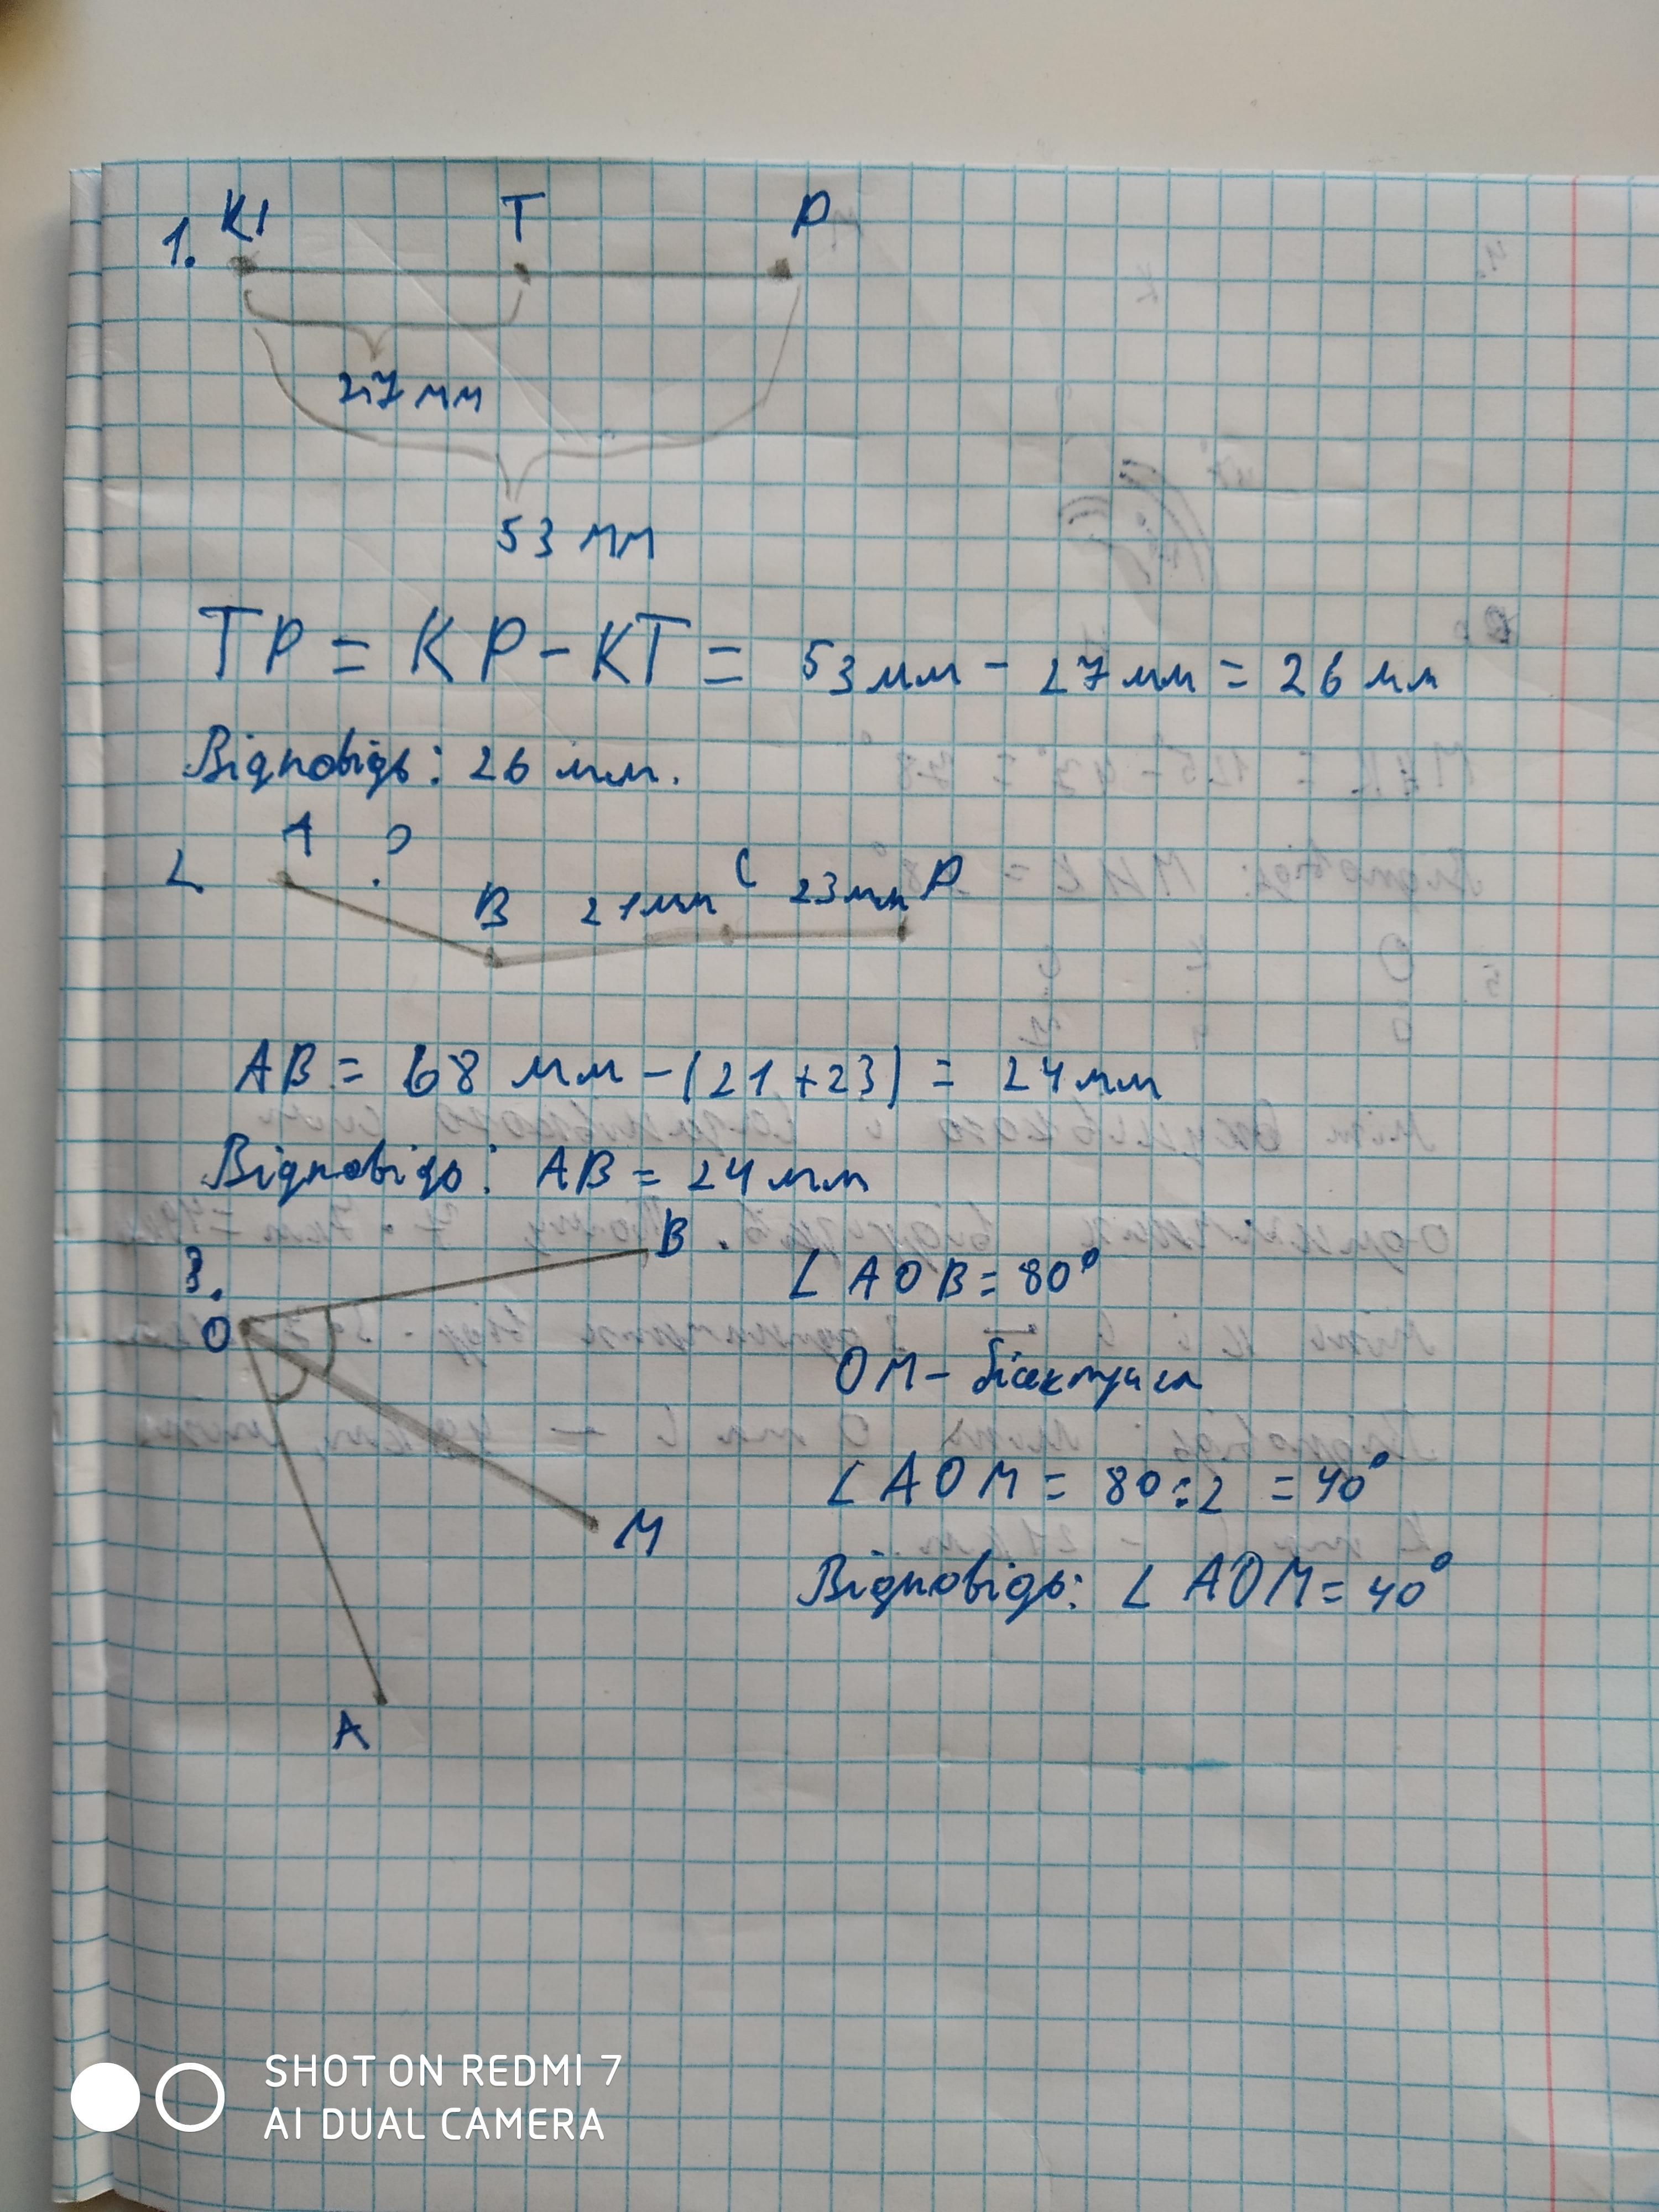 1. К T P
27 мм
53 мм
TP = KP - KT = 53 мм - 27 мм = 26 мм
Відповідь: 26 мм.
2. A ?
B 21 мм C 23 мм P
AB = 68 мм - (21 + 23) = 24 мм
Відповідь: AB = 24 мм
3. B . ∠ AOB = 80°
O
OM - бісектриса
∠ AOM = 80 : 2 = 40°
M
Відповідь: ∠ AOM = 40°
A
SHOT ON REDMI 7
AI DUAL CAMERA